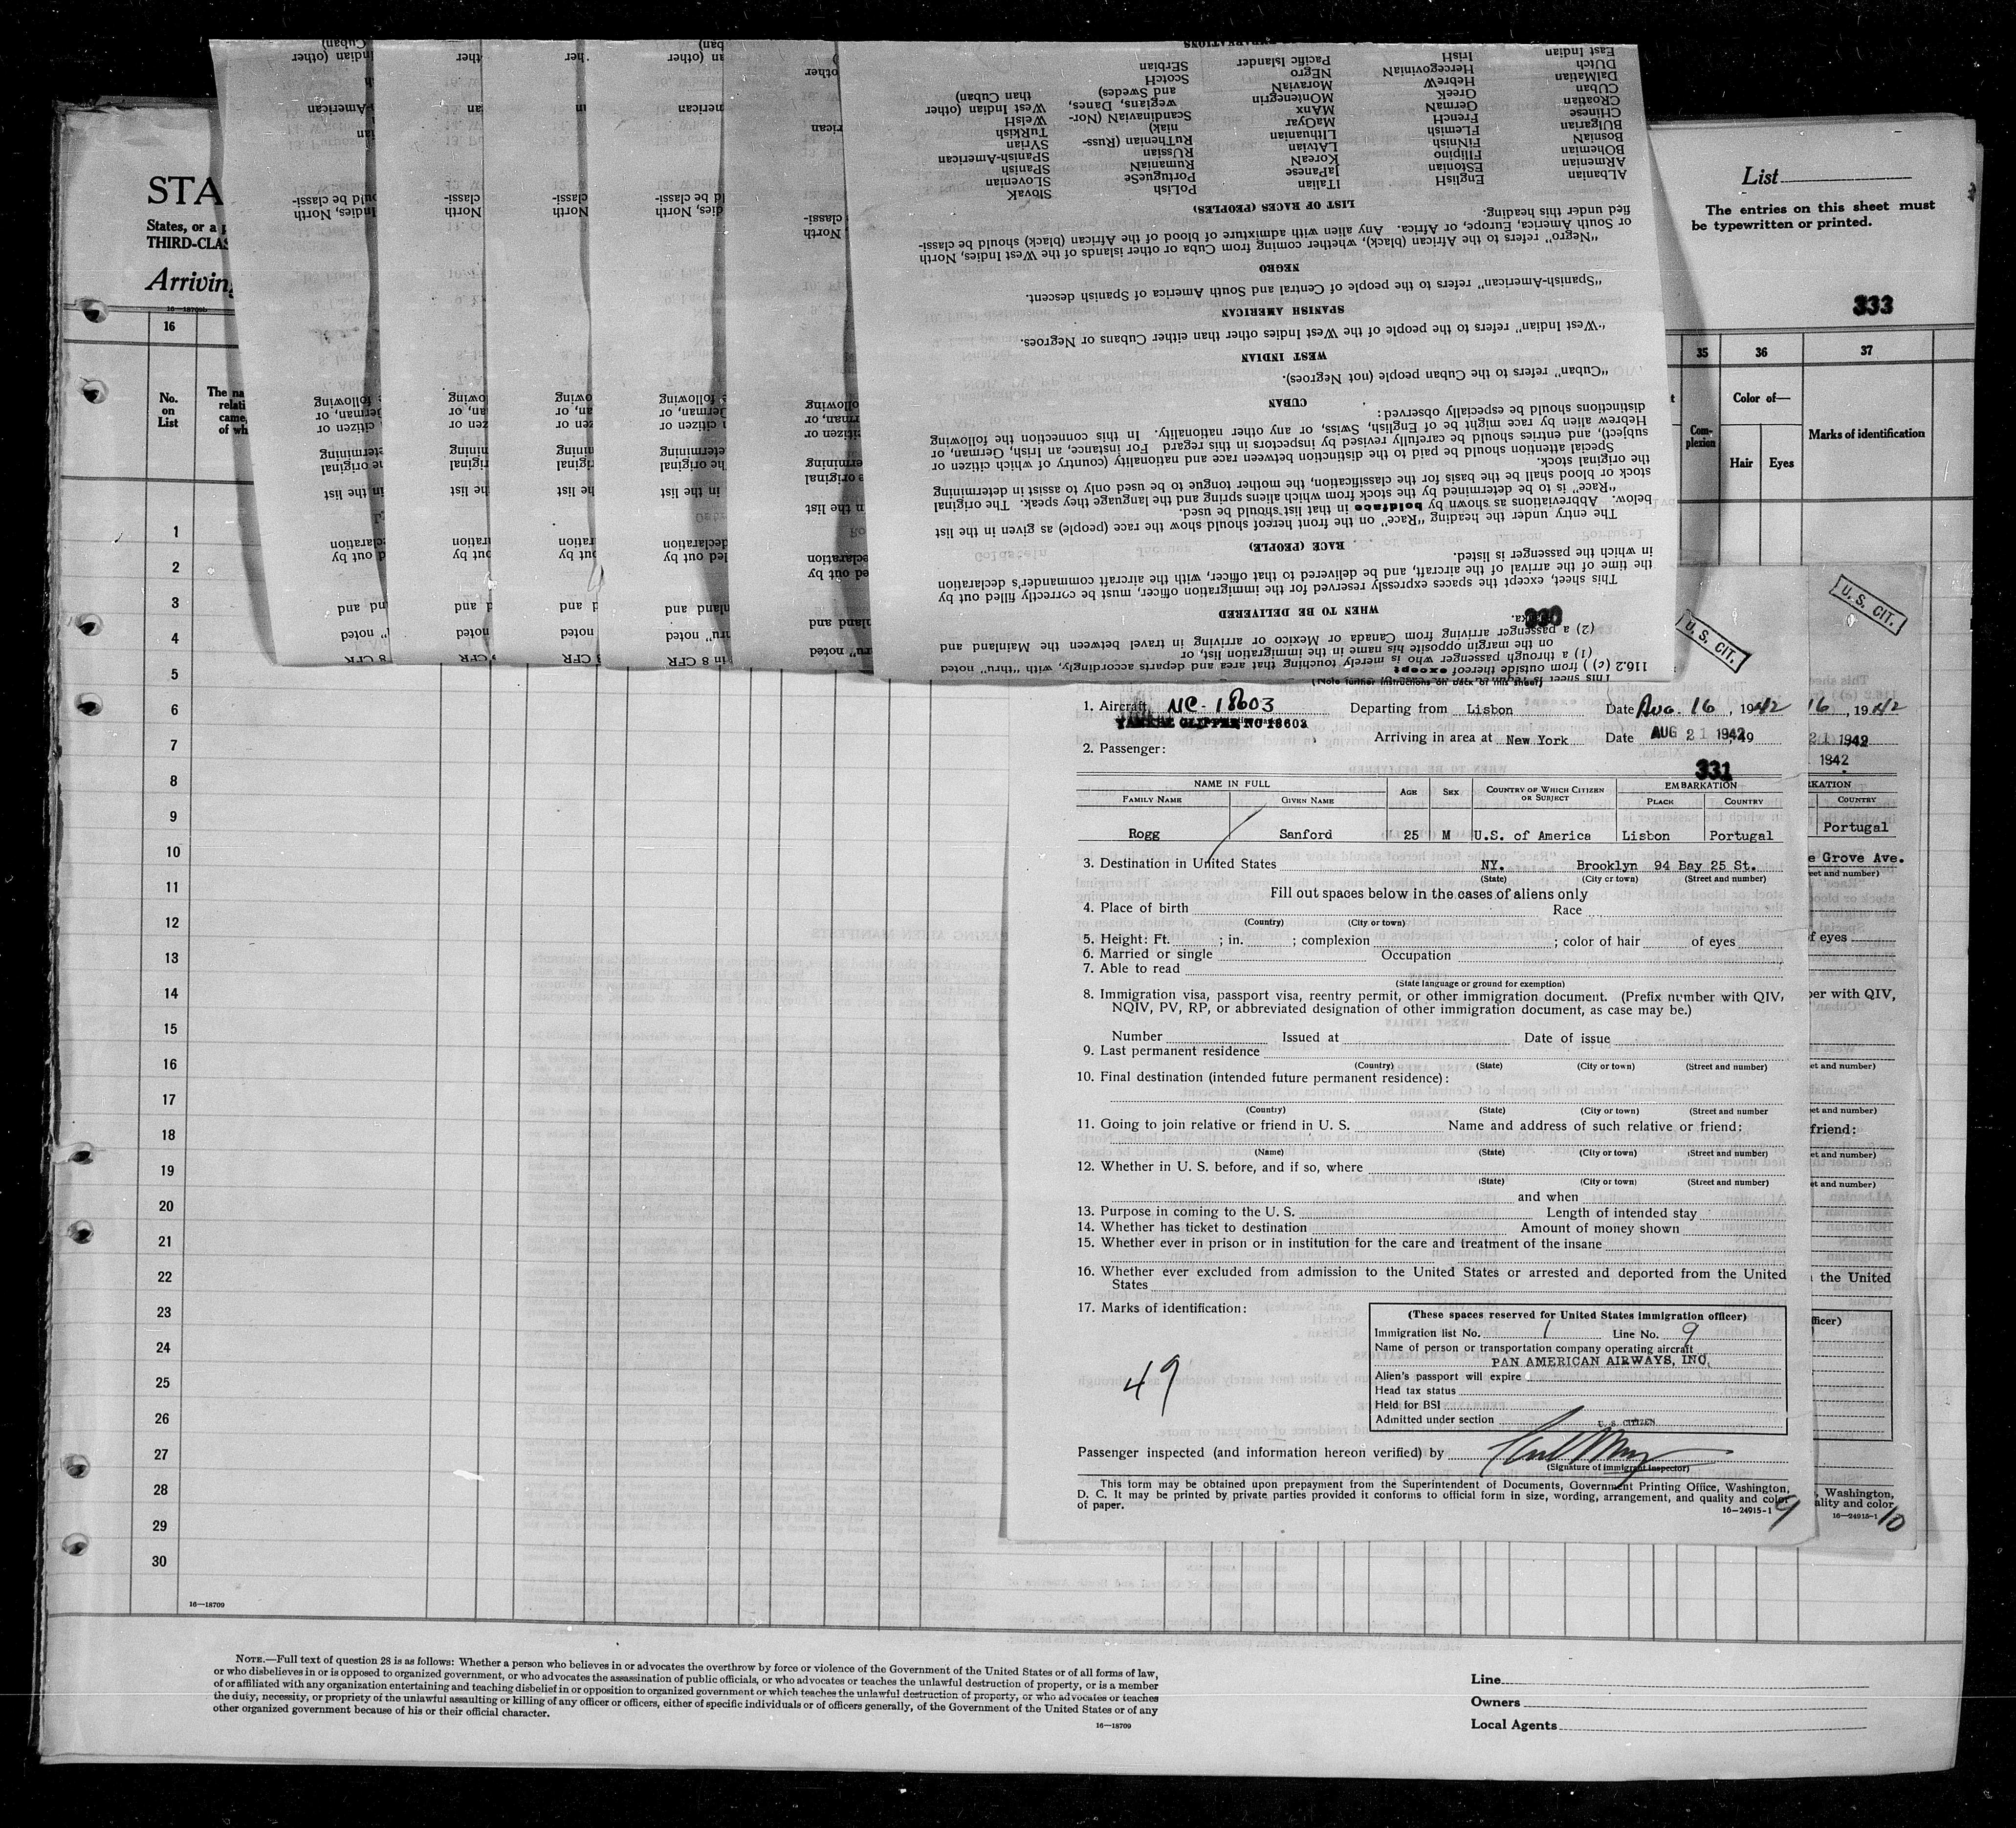 STA
States, or a p
THIRD-CLAS
Arriving
16—18709b
List
The entries on this sheet must
be typewritten or printed.
333
16
35
36
37
No.
on
List
The na
relati
came,
of wh
Com-
plexion
Color of—
Hair
Eyes
Marks of identification
1
2
3
4
5
6
7
8
9
10
11
12
13
14
15
16
17
18
19
20
21
22
23
24
25
26
27
28
29
30
16—18709
This sheet is
116.2 (c) ) from outside thereof except
(1) a through passenger who is merely touching that area and departs accordingly, with "thru" noted
on the margin opposite his name in the immigration list, or
(2) a passenger arriving from Canada or Mexico or arriving in travel between the Mainland and
330
WHEN TO BE DELIVERED
This sheet, except the spaces expressly reserved for the immigration officer, must be correctly filled out by
the time of the arrival of the aircraft, and be delivered to that officer, with the aircraft commander's declaration
in which the passenger is listed.
RACE (PEOPLE)
The entry under the heading "Race" on the front hereof should show the race (people) as given in the list
below. Abbreviations as shown by boldface in that list should be used.
"Race" is to be determined by the stock from which aliens spring and the language they speak. The original
stock or blood shall be the basis for the classification, the mother tongue to be used only to assist in determining
the original stock.
Special attention should be paid to the distinction between race and nationality (country of which citizen or
subject), and entries should be carefully revised by inspectors in this regard. For instance, an Irish, German, or
Hebrew alien by race might be of English, Swiss, or any other nationality. In this connection the following
distinctions should be especially observed:
CUBAN
"Cuban" refers to the Cuban people (not Negroes).
WEST INDIAN
"West Indian" refers to the people of the West Indies other than either Cubans or Negroes.
SPANISH AMERICAN
"Spanish-American" refers to the people of Central and South America of Spanish descent.
NEGRO
"Negro" refers to the African (black), whether coming from Cuba or other islands of the West Indies, North
or South America, Europe, or Africa. Any alien with admixture of blood of the African (black) should be classi-
fied under this heading.
LIST OF RACES (PEOPLES)
ALbanian
ARmenian
BOhemian
BosniaN
BUlgarian
CHinese
CRoatian
CUban
DalMatian
DUtch
East Indian
EnglisH
EStonian
FIlipino
FiNnish
FLemish
FrencH
GermaN
GreeK
HebreW
HercegoviniaN
IrisH
ITalian
JaPanese
KoreaN
LAtvian
LIthuanian
MaGyar
MAnx
MOntenegrin
MoraviaN
NEgro
Pacific Islander
POLish
PortugueSe
RumaniaN
RUssian
RuThenian (Russ-
niak)
ScandinaviaN (Nor-
wegians, Danes,
and Swedes)
ScotcH
SErbian
SlovaK
SLovenian
SPanish
SPanish-American
SYrian
TurKish
WelsH
West Indian (other
than Cuban)
U. S. CIT.
U. S. CIT.
(Note further instructions on back of this sheet)
1. Aircraft NC-18603
YANKEE CLIPPER NC 18603
Departing from Lisbon Date Aug. 16, 1942
Arriving in area at New York Date AUG 21 1942, 19
2. Passenger:
331
NAME IN FULL
FAMILY NAME
GIVEN NAME
AGE
SEX
COUNTRY OF WHICH CITIZEN
OR SUBJECT
EMBARKATION
PLACE
COUNTRY
Rogg Sanford 25 M U.S. of America Lisbon Portugal
3. Destination in United States NY. Brooklyn 94 Bay 25 St.
(State) (City or town) (Street and number)
Fill out spaces below in the cases of aliens only
4. Place of birth Race
(Country) (City or town)
5. Height: Ft. ; in. ; complexion ; color of hair of eyes
6. Married or single Occupation
7. Able to read
(State language or ground for exemption)
8. Immigration visa, passport visa, reentry permit, or other immigration document. (Prefix number with QIV,
NQIV, PV, RP, or abbreviated designation of other immigration document, as case may be.)
Number Issued at Date of issue
9. Last permanent residence
(Country) (State) (City or town) (Street and number)
10. Final destination (intended future permanent residence):
(Country) (State) (City or town) (Street and number
11. Going to join relative or friend in U. S. Name and address of such relative or friend:
(Name) (State) (City or town) (Street and number)
12. Whether in U. S. before, and if so, where
(State) (City or town) (Street and number)
and when
13. Purpose in coming to the U. S. Length of intended stay
14. Whether has ticket to destination Amount of money shown
15. Whether ever in prison or in institution for the care and treatment of the insane
16. Whether ever excluded from admission to the United States or arrested and deported from the United
States
17. Marks of identification:
49
(These spaces reserved for United States immigration officer)
Immigration list No. 1 Line No. 9
Name of person or transportation company operating aircraft
PAN AMERICAN AIRWAYS, INC.
Alien's passport will expire
Head tax status
Held for BSI
Admitted under section U. S. CITIZEN
Passenger inspected (and information hereon verified) by
(Signature of immigrant inspector)
This form may be obtained upon prepayment from the Superintendent of Documents, Government Printing Office, Washington,
D. C. It may be printed by private parties provided it conforms to official form in size, wording, arrangement, and quality and color
of paper.
16—24915-1
9
16, 1942
21 1942
1942
RKATION
COUNTRY
Portugal
e Grove Ave.
eet and number)
of eyes
ber with QIV,
et and number)
et and number)
friend:
et and number)
et and number)
the United
fficer)
, Washington,
ality and color
16—24915-1
10
NOTE.—Full text of question 28 is as follows: Whether a person who believes in or advocates the overthrow by force or violence of the Government of the United States or of all forms of law,
or who disbelieves in or is opposed to organized government, or who advocates the assassination of public officials, or who advocates or teaches the unlawful destruction of property, or is a member
of or affiliated with any organization entertaining and teaching disbelief in or opposition to organized government or which teaches the unlawful destruction of property, or who advocates or teaches
the duty, necessity, or propriety of the unlawful assaulting or killing of any officer or officers, either of specific individuals or of officers generally, of the Government of the United States or of any
other organized government because of his or their official character.
16—18709
Line
Owners
Local Agents